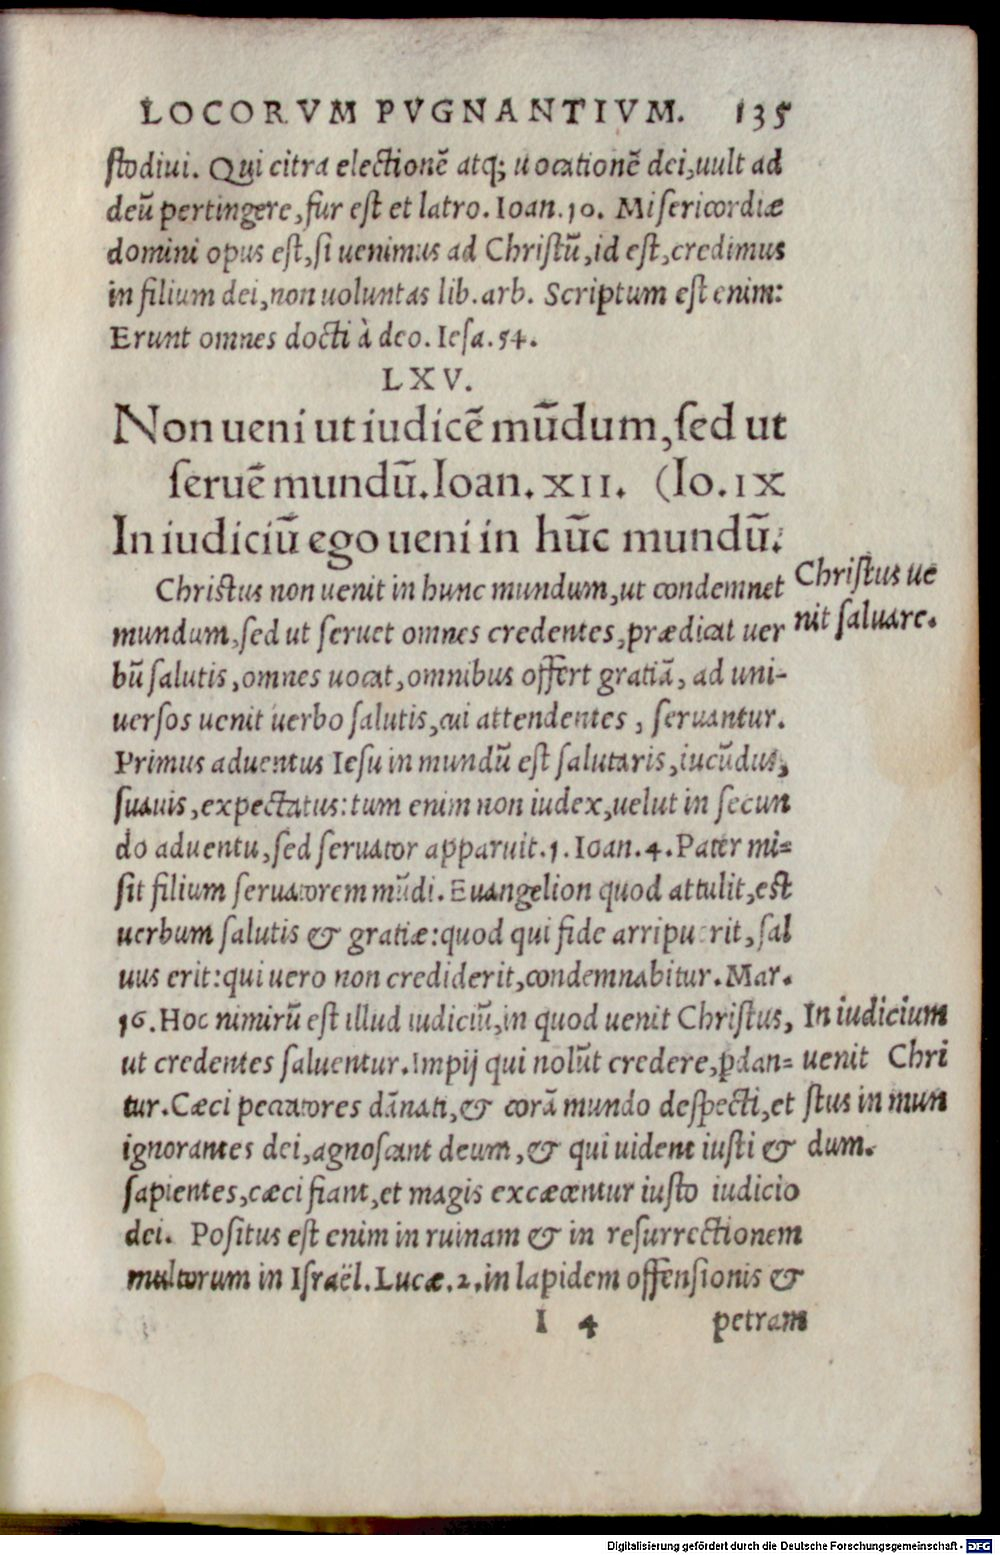 LOCORVM PVGNANTIVM. 135
stodiui. Qui citra electionẽ atq; uocationẽ dei, uult ad
deũ pertingere, fur est et latro. Ioan. 10. Misericordiæ
domini opus est, si uenimus ad Christũ, id est, credimus
in filium dei, non uoluntas lib. arb. Scriptum est enim:
Erunt omnes docti à deo. Iesa. 54.
LXV.
Non ueni ut iudicẽ mũdum, sed ut
seruẽ mundũ. Ioan. XII. (Io. IX
In iudiciũ ego ueni in hũc mundũ.
Christus non uenit in hunc mundum, ut condemnet
mundum, sed ut seruet omnes credentes, prædicat uer
bũ salutis, omnes uocat, omnibus offert gratiã, ad uni-
uersos uenit uerbo salutis, cui attendentes, seruantur.
Primus aduentus Iesu in mundũ est salutaris, iucũdus,
suauis, expectatus: tum enim non iudex, uelut in secun
do aduentu, sed seruator apparuit. 1. Ioan. 4. Pater mi=
sit filium seruatorem mũdi. Euangelion quod attulit, est
uerbum salutis & gratiæ: quod qui fide arripuerit, sal
uus erit: qui uero non crediderit, condemnabitur. Mar.
16. Hoc nimirũ est illud iudiciũ, in quod uenit Christus,
ut credentes saluentur. Impij qui nolũt credere, p̱dan=
tur. Cæci peccatores dãnati, & corã mundo despecti, et
ignorantes dei, agnoscant deum, & qui uident iusti &
sapientes, cæci fiant, et magis excæcentur iusto iudicio
dei. Positus est enim in ruinam & in resurrectionem
multorum in Israël. Lucæ. 2. in lapidem offensionis &
I 4 petram
Christus ue
nit saluare.
In iudicium
uenit Chri
stus in mun
dum.
Digitalisierung gefördert durch die Deutsche Forschungsgemeinschaft - DFG